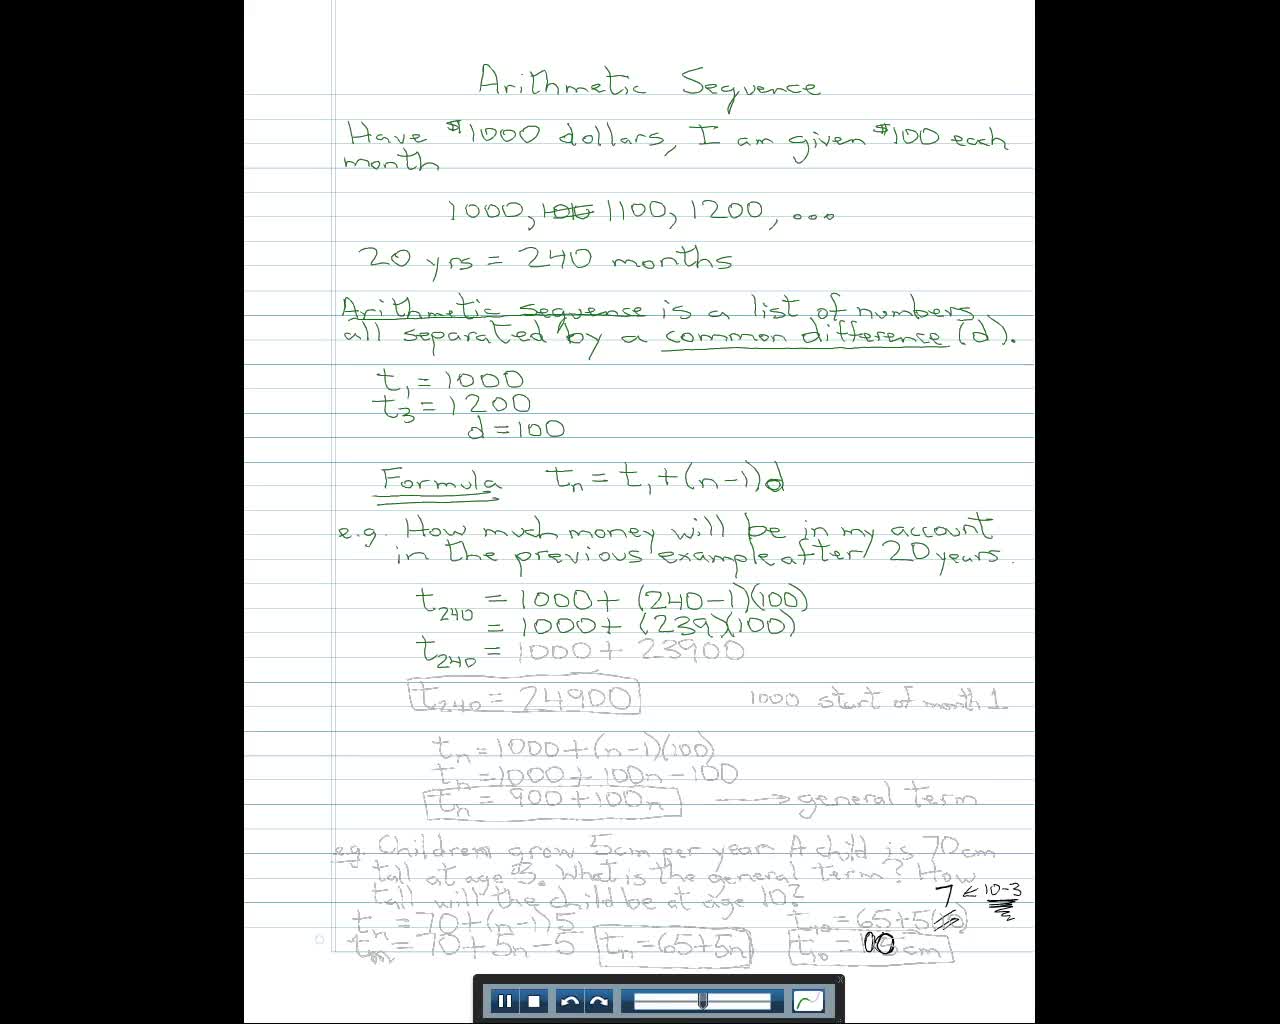 Arithmetic Sequence
Have $1000 dollars, I am given $100 each
month
1000, 1100, 1200, ...
20 yrs = 240 months
Arithmetic sequence is a list of numbers
all separated by a common difference (d).
t₁ = 1000
t₃ = 1200
d = 100
Formula tₙ = t₁ + (n-1)d
e.g. How much money will be in my account
in the previous example after 20 years.
t₂₄₀ = 1000 + (240-1)(100)
= 1000 + (239)(100)
t₂₄₀ = 1000 + 23900
t₂₄₀ = 24900 1000 start of month 1
tₙ = 1000 + (n-1)(100)
tₙ = 1000 + 100n - 100
tₙ = 900 + 100n → general term
e.g. Children grow 5cm per year. A child is 70cm
tall at age 3. What is the general term? How
tall will the child be at age 10?
7 ← 10-3
tₙ = 70 + (n-1)5 t₁₀ = 65 + 5
tₙ = 70 + 5n - 5 tₙ = 65 + 5n t₁₀ = cm